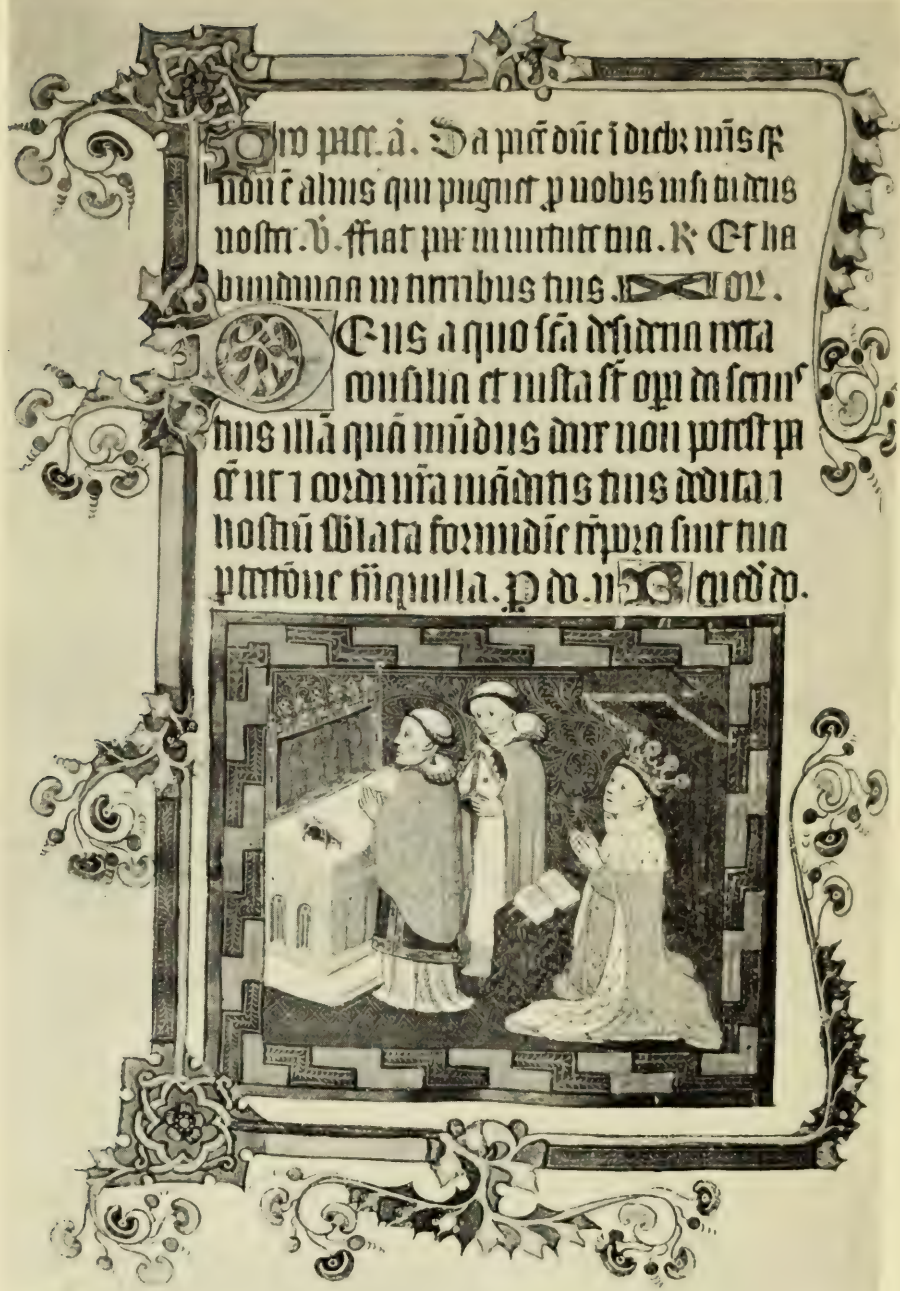 Pro pace. a. Da pacē dn̄e ī dieb; nr̄is qꝛ
non ē alius qui pugnet ꝓ nobis nisi tu deus
noster. V̄. ffiat pax in uirtute tua. R Et ha
bundancia in turribus tuis. OR̄.
DEus a quo sc̄a desideria recta
consilia et iusta st̄ oꝑa da seruis
tuis illā quā mūdus dare non potest pa
cē ut ⁊ corda nr̄a mādatis tuis dedita ⁊
hostiū sublata formidīe tp̄ora sint tua
ptectōne tn̄quilla. P do. n